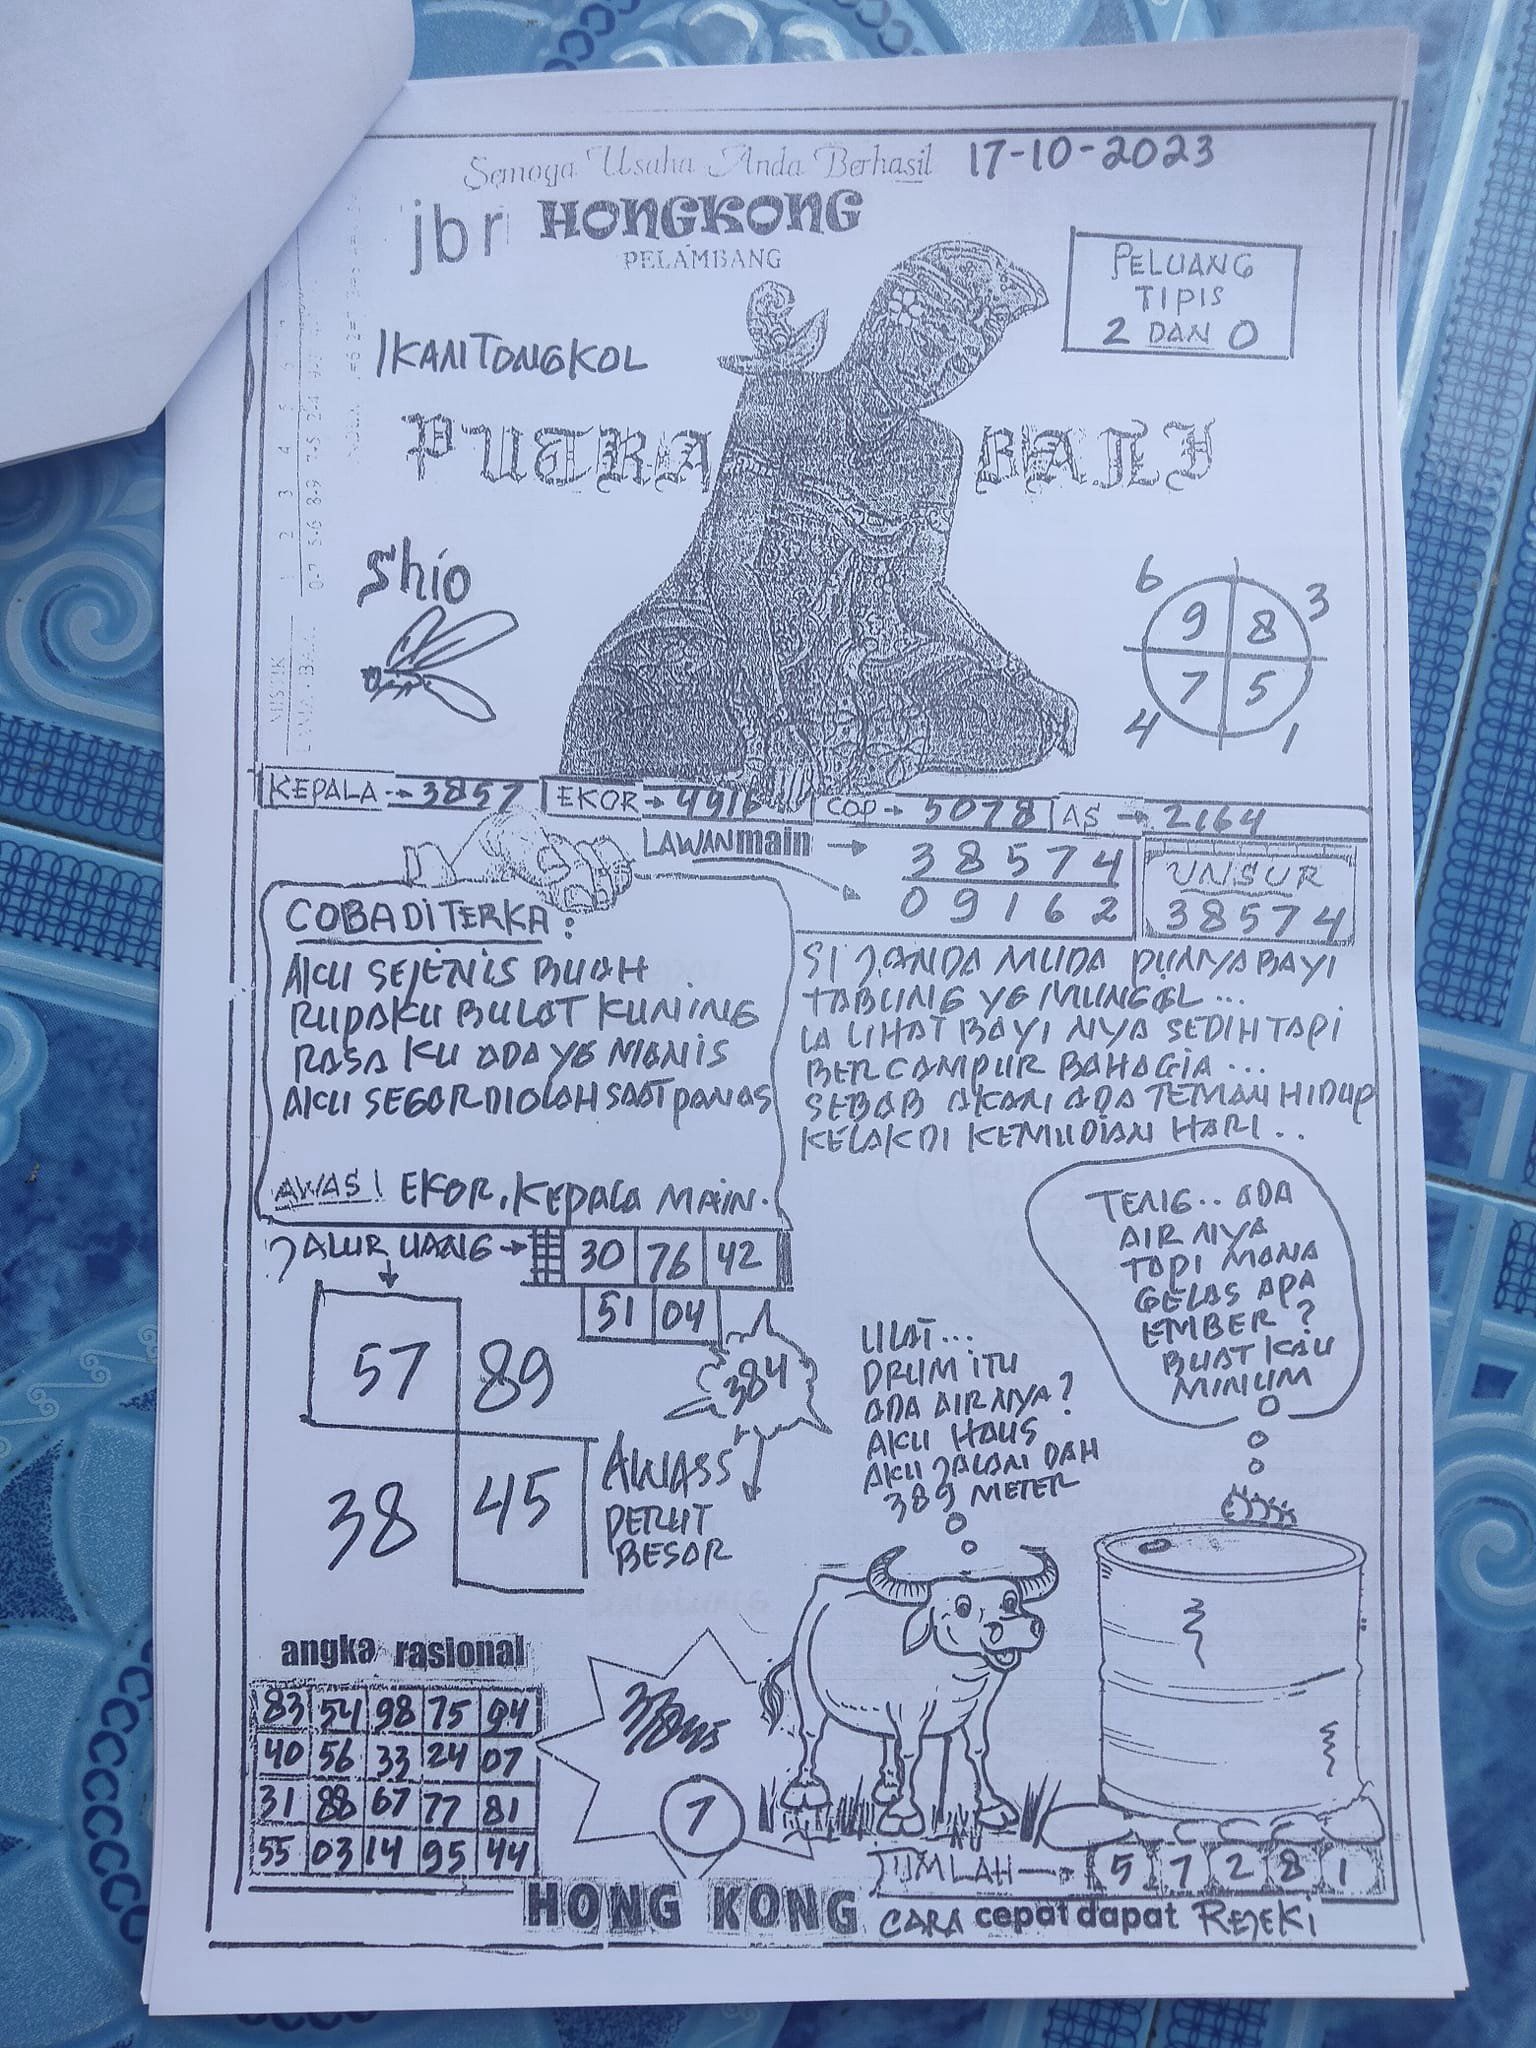 Semoga Usaha Anda Berhasil 17-10-2023
jbr HONGKONG
PELAMBANG
PELUANG
TIPIS
2 DAN 0
IKAN TONGKOL
PUTRA BALI
Shio
6 3
9 8
7 5
4 1
KEPALA → 3857 EKOR → 4916 COP → 5078 AS → 2164
LAWAN main → 38574
09162
UNSUR
38574
COBA DITERKA:
AKU SEJENIS BUAH
RUPAKU BULAT KUNING
RASA KU ADA YG MANIS
AKU SEGAR DIOLAH SAAT PANAS
AWAS! EKOR, KEPALA MAIN.
SI JANDA MUDA PUNYA BAYI
TABUNG YG MUNGGL...
IA LIHAT BAYI NYA SEDIH TAPI
BERCAMPUR BAHAGIA...
SEBAB AKAN ADA TEMAN HIDUP
KELAK DI KEMUDIAN HARI..
JALUR UANG → 30 76 42
51 04
57 89
38 45
384
AWASS
PERUT
BESAR
LILAT...
DRUM ITU
ADA AIRNYA?
AKU HAUS
AKU JALAN DAH
389 METER
TENG.. ADA
AIR NYA
TAPI MANA
GELAS APA
EMBER?
BUAT KAU
MINUM
angka rasional
83 54 98 75 94
40 56 33 24 07
31 88 67 77 81
55 03 14 95 44
7
JUMLAH → 5 7 2 8 1
HONG KONG CARA cepat dapat REJEKI